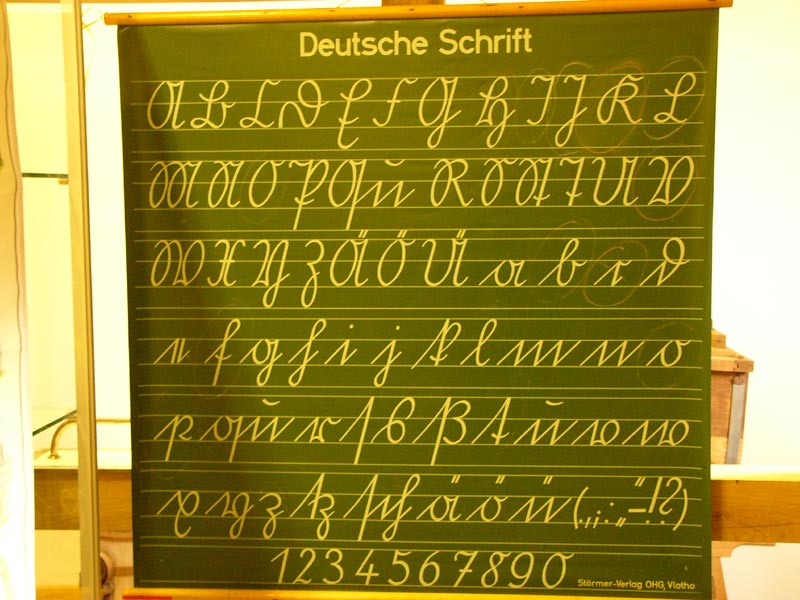 Deutsche Schrift
A B C D E F G H I J K L
M N O P Qu R S St T U V
W X Y Z Ä Ö Ü a b c d
e f g h i j k l m n o
p qu r ſ s ß t u v w
x y z tz ſch ä ö ü (.,;:„“–!?)
1 2 3 4 5 6 7 8 9 0
Störmer-Verlag OHG, Vlotho